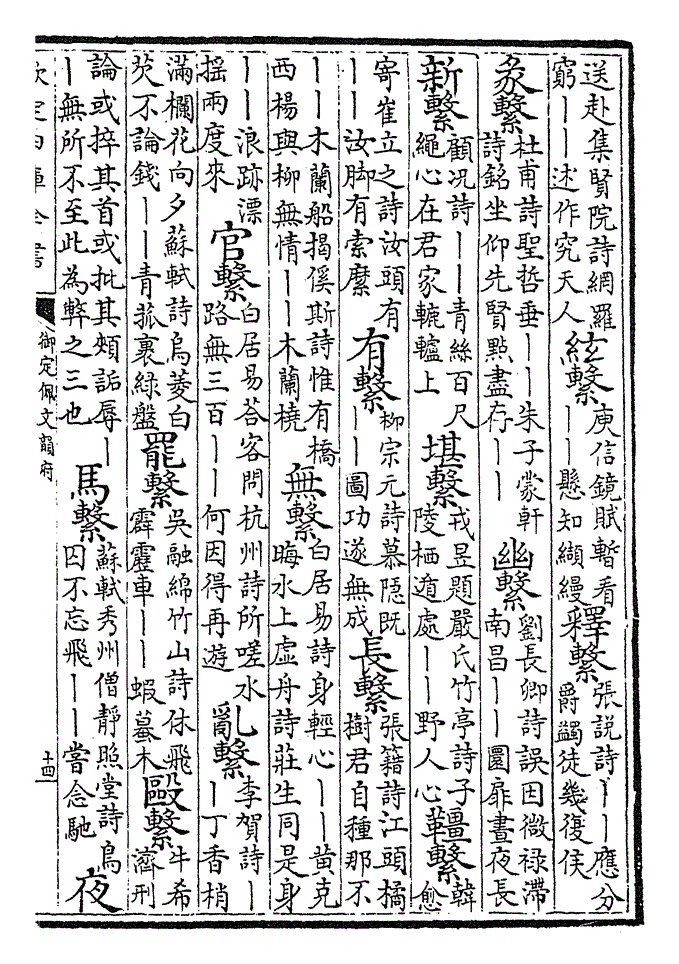 送赴集賢院詩網羅
窮——述作究天人
絃繫
庾信鏡賦暫看
——懸知纈縵
釋繫
張說詩——應分
爵蠲徒幾復侯
彖繫
杜甫詩聖哲垂——朱子蒙軒
詩銘坐仰先賢㸃盡存——
幽繫
劉長卿詩誤因微祿滯
南昌——圜扉晝夜長
新繫
顧况詩——青絲百尺
繩心在君家轆轤上
堪繫
戎昱題嚴氏竹亭詩子
陵栖遁處——野人心
韁繫
韓
愈
寄崔立之詩汝頭有
——汝脚有索縻
有繫
柳宗元詩慕隠既
——圖功遂無成
長繫
張籍詩江頭橘
樹君自種那不
——木蘭船揭傒斯詩惟有橋
西楊與柳無情——木蘭橈
無繫
白居易詩身輕心——黄克
晦水上虚舟詩莊生同是身
——浪跡漂
揺兩度來
官繫
白居易荅客問杭州詩所嗟水
路無三百——何因得再遊
亂繫
李賀詩—
—丁香梢
滿欄花向夕蘇軾詩烏菱白
芡不論錢——青菰裹緑盤
罷繫
吳融綿竹山詩休飛
霹靂車——蝦蟇木
毆繫
牛希
濟刑
論或捽其首或批其頰詬辱—
—無所不至此為弊之三也
馬繫
蘇軾秀州僧靜照堂詩鳥
囚不忘飛——嘗念馳
夜
欽定四庫全書
御定佩文韻府
十四